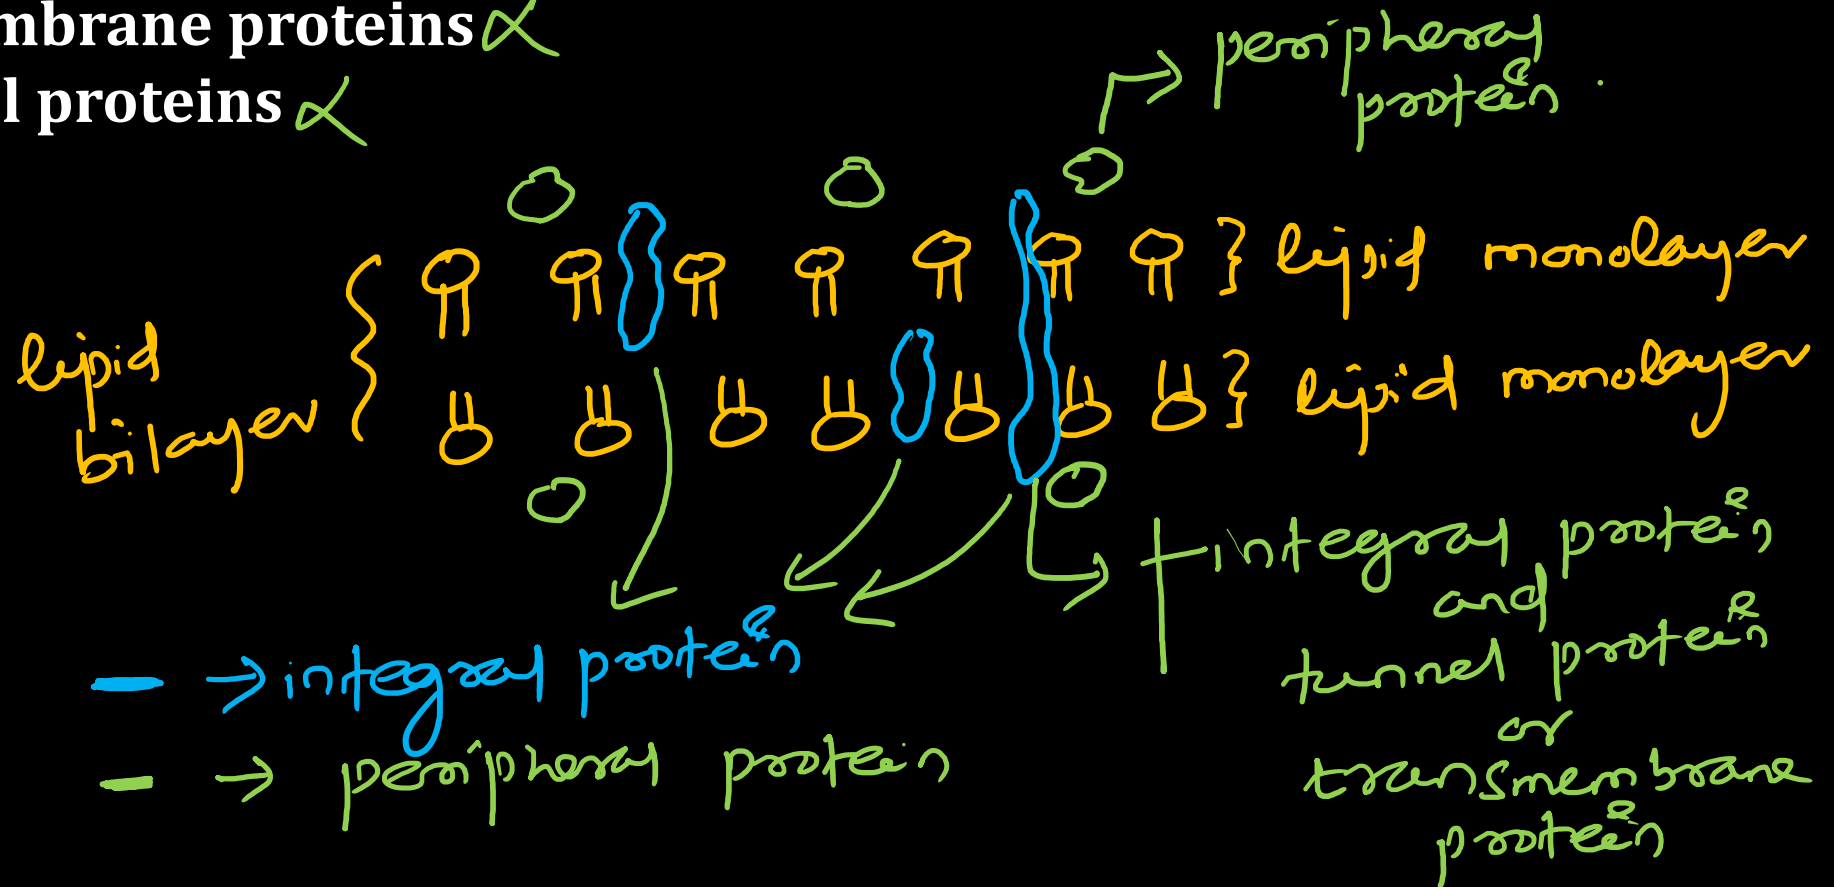 mbrane proteins
l proteins
peripheral
protein
lipid monolayer
lipid monolayer
lipid
bilayer
integral protein
and
tunnel protein
or
transmembrane
protein
→ integral protein
→ peripheral protein